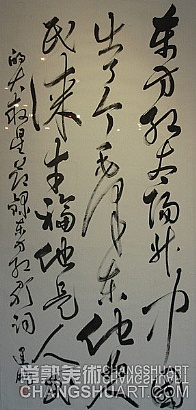 东方红太阳升中国
出了个毛泽东他为人
民谋生福他是人民
的大救星 录东方红歌词
常熟美術
CHANGSHUART.COM
CHANGSHUART.COM